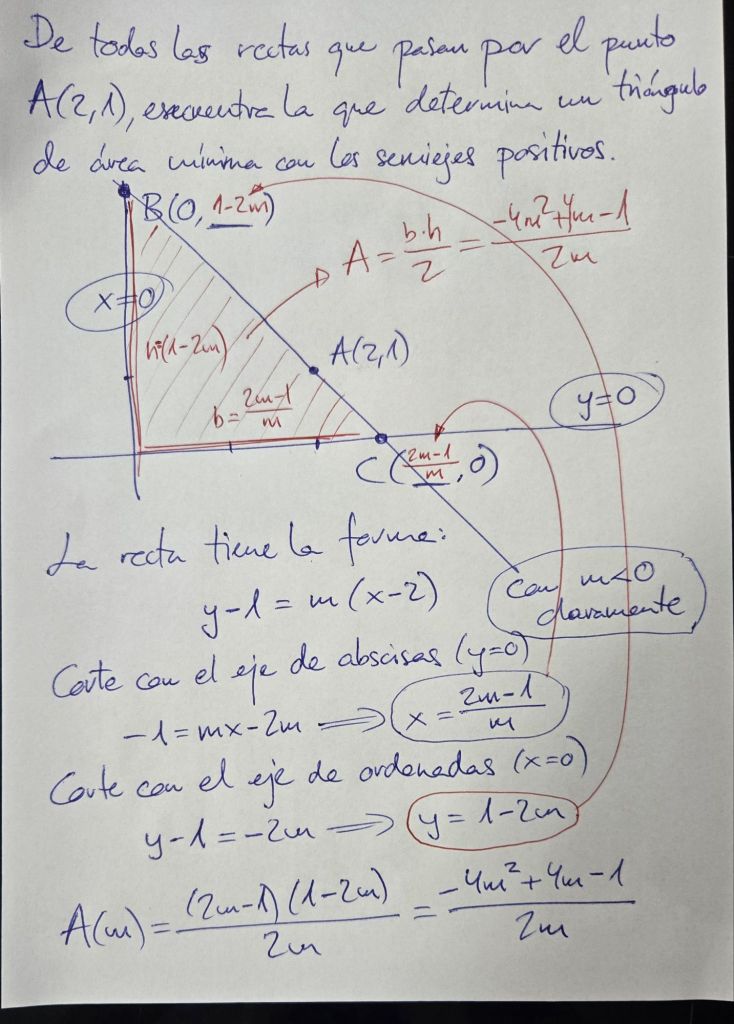 De todas las rectas que pasan por el punto
A(2,1), encuentra la que determina un triángulo
de área mínima con los semiejes positivos.
B(0, 1-2m)
A = b·h/2 = (-4m²+4m-1)/2m
x=0
h=(1-2m)
A(2,1)
b = (2m-1)/m
y=0
C((2m-1)/m, 0)
La recta tiene la forma:
con m<0
claramente
y-1 = m(x-2)
Corte con el eje de abscisas (y=0)
-1 = mx-2m ⟹ x = (2m-1)/m
Corte con el eje de ordenadas (x=0)
y-1 = -2m ⟹ y = 1-2m
A(m) = (2m-1)(1-2m)/2m = (-4m²+4m-1)/2m